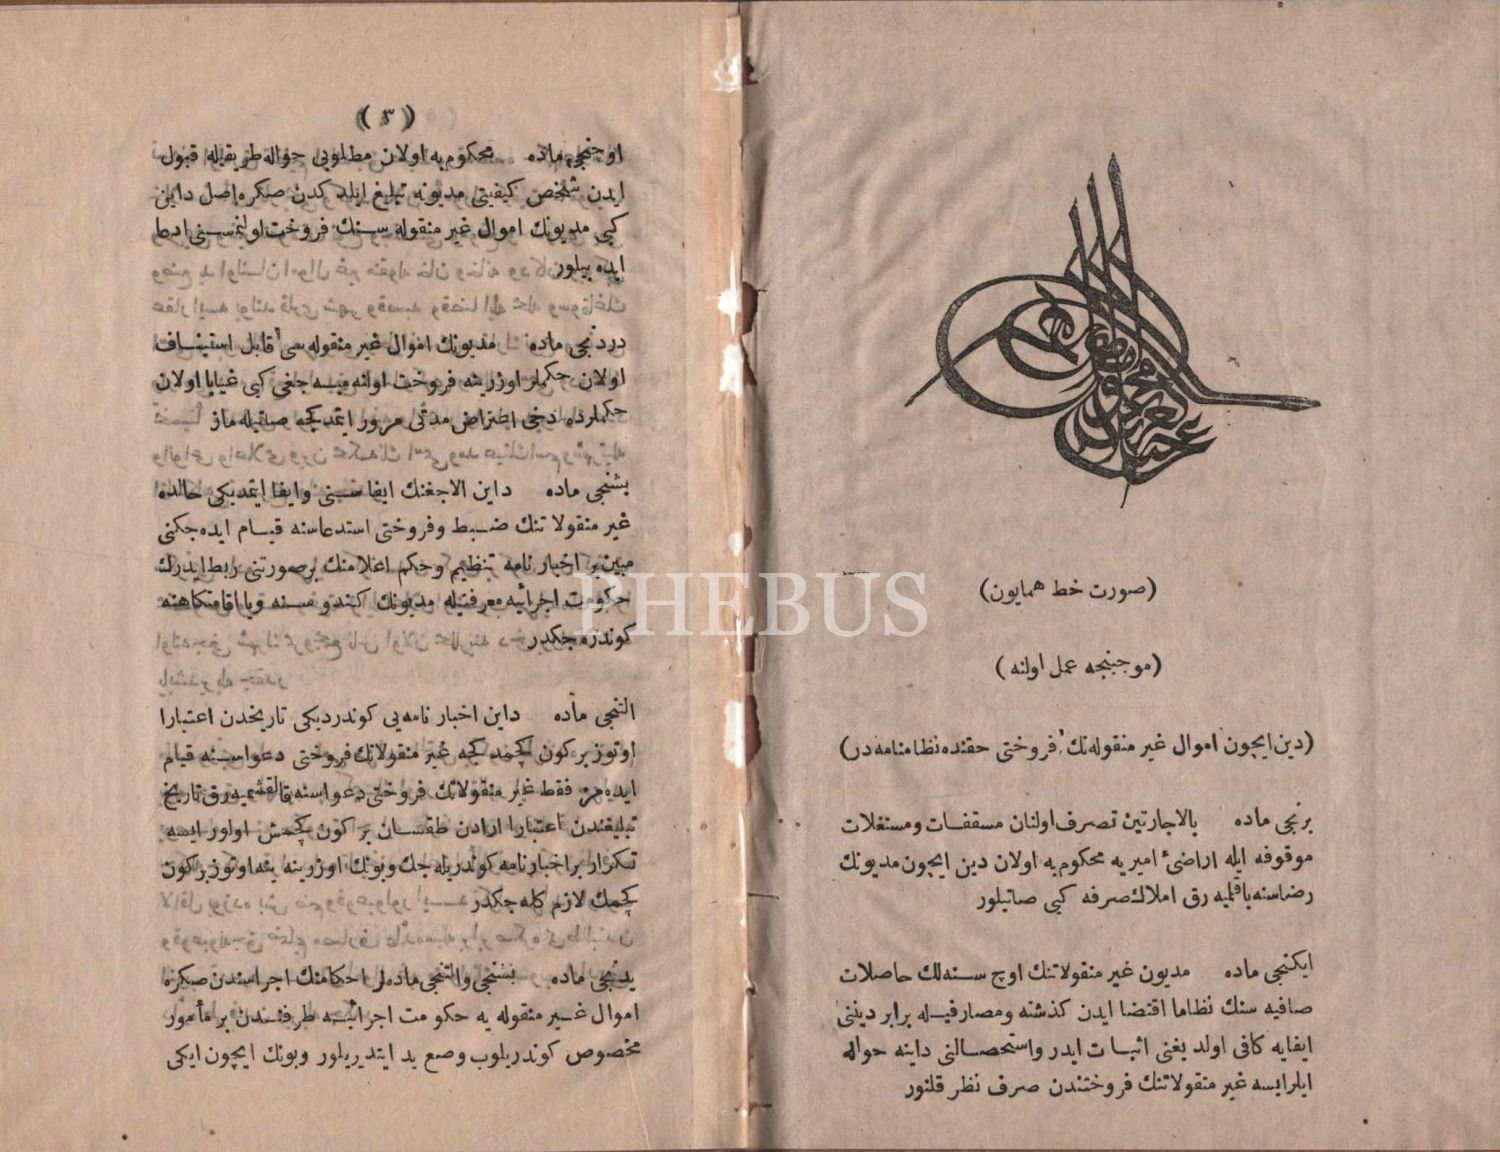 (صورت خط همایون)
(موجبنجه عمل اولنه)
(دین ایچون اموال غیر منقوله‌نك فروختی حقنده نظامنامه‌در)
برنجی ماده بالاجارتین تصرف اولنان مسقفات ومستغلات
موقوفه ایله اراضئ امیریه محکوم به اولان دین ایچون مدیونك
رضاسنه باقلمیه‌رق املاك صرفه کبی صاتیلور
ایکنجی ماده مدیون غیر منقولاتنك اوچ سنه‌لك حاصلات
صافیه سنك نظاما اقتضا ایدن کذشته ومصارفیله برابر دیننی
ایفایه کافی اولدیغنی اثبات ایدر واستحصالنی داینه حواله
ایلرایسه غیر منقولاتنك فروختندن صرف نظر قلنور
(٣)
اوچنجی ماده محکوم به اولان مطلوبی حواله طریقیله قبول
ایدن شخص کیفیتی مدیونه تبلیغ ایلدکدن صکره اصل داین
کبی مدیونك اموال غیر منقوله سنك فروخت اولنمسنی ادعا
ایده بیلور
دردنجی ماده مدیونك اموال غیر منقوله سی قابل استیناف
اولان حکملر اوزرینه فروخت اولنه میه جغی کبی غیابا اولان
حکملرده دخی اعتراض مدتی مرور ایتمدکجه صتیله‌ماز
بشنجی ماده داین الاجغنك ایفاسنی وایفا ایتمدیکی حالده
غیر منقولاتنك ضبط وفروختی استدعاسنه قیام ایده‌جکنی
مبین بر اخبارنامه تنظیم وحکم اعلامنك برصورتنی ربط ایدرك
حکومت اجرائیه معرفتیله مدیونك کندوسنه ویا اقامتکاهنه
کوندره‌جکدر
التنجی ماده داین اخبارنامه‌یی کوندردیکی تاریخدن اعتبارا
اوتوز بر کون کچمدکجه غیر منقولاتك فروختی دعواسنه قیام
ایده‌مز فقط غیر منقولاتك فروختی دعواسنه قالقشمیه‌رق تاریخ
تبلیغندن اعتبارا ارادن طقسان بر کون کچمش اولور ایسه
تکرار بر اخبارنامه کوندریله‌جك وبونك اوزرینه ینه اوتوز بر کون
کچمك لازم کله‌جکدر
یدنجی ماده بشنجی والتنجی ماده‌لر احکامنك اجراسندن صکره
اموال غیر منقوله‌یه حکومت اجرائیه طرفندن بر مأمور
مخصوص کوندریلوب وضع ید ایتدیریلور وبونك ایچون ایکی
PHEBUS